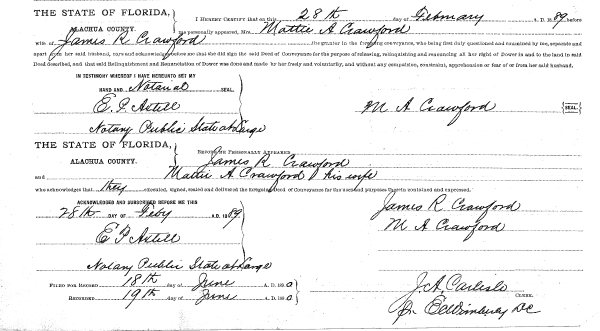 THE STATE OF FLORIDA,
ALACHUA COUNTY.
I HEREBY CERTIFY that on this 28th day of February A. D. 1889, before
me personally appeared, Mrs. Mattie A Crawford
wife of James R Crawford the grantor in the foregoing conveyance, who being first duly questioned and examined by me, separate and
apart from her said husband, did sign the said Deed of Conveyance for the purpose of releasing, relinquishing and renouncing all her right of Dower in and to the land in said
Deed described, and that said Relinquishment and Renunciation of Dower was done and made by her freely and voluntarily, and without any compulsion, constraint, apprehension or fear of or from her said husband.
IN TESTIMONY WHEREOF I HAVE HEREUNTO SET MY
HAND AND Notarial SEAL.
E. P. Axtell
M A Crawford {SEAL}
Notary Public State at Large
THE STATE OF FLORIDA,
ALACHUA COUNTY.
BEFORE ME PERSONALLY APPEARED James R. Crawford
and Mattie A Crawford his wife
who acknowledges that they executed, signed, sealed and delivered the foregoing Deed of Conveyance for the uses and purposes therein contained and expressed.
ACKNOWLEDGED AND SUBSCRIBED BEFORE ME THIS
28th DAY OF Feby A.D. 1889.
James R. Crawford
M A Crawford
E P Axtell
Notary Public State at Large
FILED FOR RECORD 18th day of June A. D. 1880
RECORDED 19th day of June A. D. 1880
J. A. Carlisle
CLERK.
DC